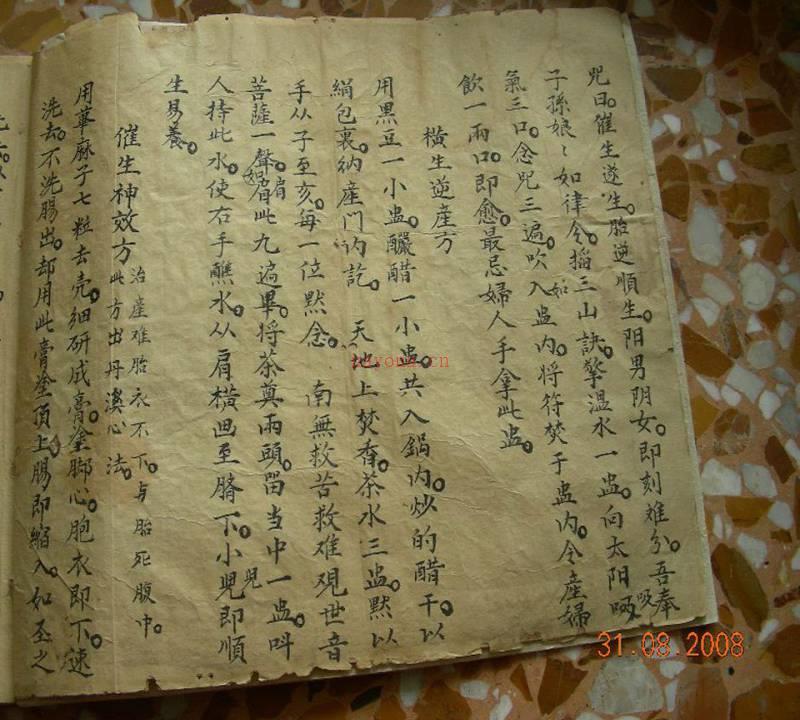 咒曰。催生遂生。胎逆順生。阳男阴女。即刻难分。吾奉
子孫娘〻如律令。掐三山訣。擎溫水一盅。向太阳吸
氣三口。念咒三遍。吹入盅内。将符焚于盅内。令產婦
飲一兩口。即愈。最忌婦人手拿此盅。
橫生逆產方
用黑豆一小盅。釅醋一小盅。共入鍋内。炒的醋干。以
絹包裹。納產門内訖。天地上焚香。茶水三盅。默以
手从子至亥。每一位默念。南無救苦救难現世音
菩薩一聲。如此九遍畢。将茶奠兩頭。留当中一盅。叫
人持此水。使右手蘸水。从肩橫画至臍下。小兒即順
生易養。
催生神效方 治產难胎衣不下。与胎死腹中。
此方出丹溪心法。
用萆麻子七粒去壳。细研成膏。塗脚心。胞衣即下。速
洗去。不洗腸出。却用此膏塗頂上。腸即縮入。如圣之
31.08.2008